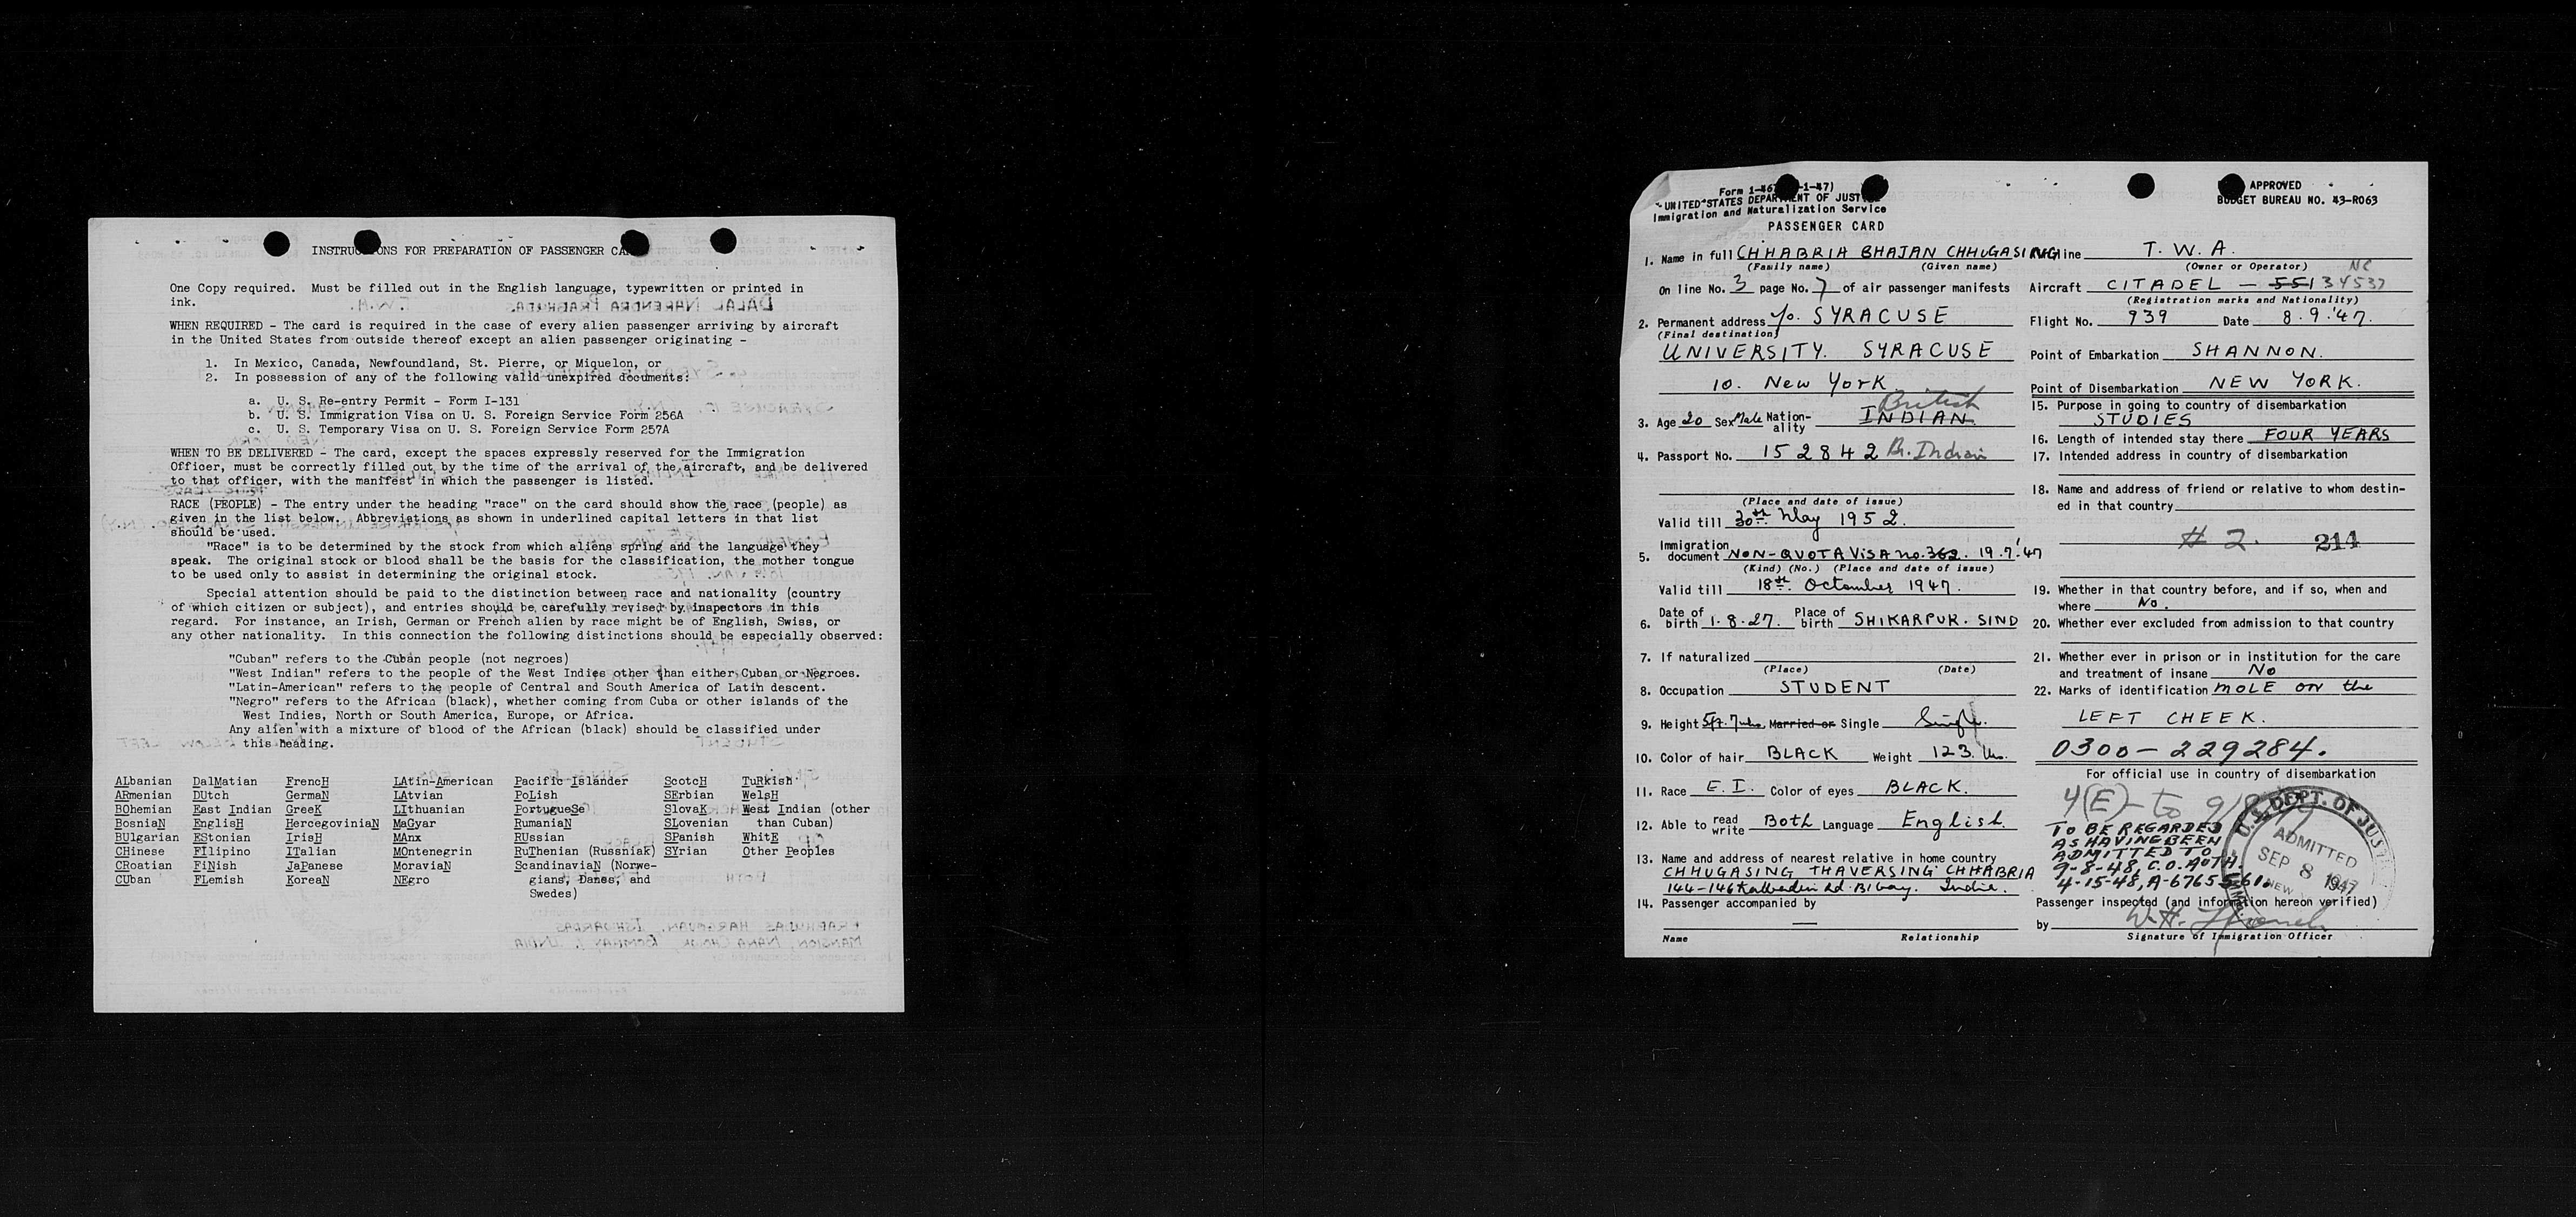 INSTRUCTIONS FOR PREPARATION OF PASSENGER CA
One Copy required. Must be filled out in the English language, typewritten or printed in
ink.
WHEN REQUIRED - The card is required in the case of every alien passenger arriving by aircraft
in the United States from outside thereof except an alien passenger originating -
1. In Mexico, Canada, Newfoundland, St. Pierre, or Miquelon, or
2. In possession of any of the following valid unexpired documents:
a. U. S. Re-entry Permit - Form I-131
b. U. S. Immigration Visa on U. S. Foreign Service Form 256A
c. U. S. Temporary Visa on U. S. Foreign Service Form 257A
WHEN TO BE DELIVERED - The card, except the spaces expressly reserved for the Immigration
Officer, must be correctly filled out by the time of the arrival of the aircraft, and be delivered
to that officer, with the manifest in which the passenger is listed.
RACE (PEOPLE) - The entry under the heading "race" on the card should show the race (people) as
given in the list below. Abbreviations as shown in underlined capital letters in that list
should be used.
"Race" is to be determined by the stock from which aliens spring and the language they
speak. The original stock or blood shall be the basis for the classification, the mother tongue
to be used only to assist in determining the original stock.
Special attention should be paid to the distinction between race and nationality (country
of which citizen or subject), and entries should be carefully revised by inspectors in this
regard. For instance, an Irish, German or French alien by race might be of English, Swiss, or
any other nationality. In this connection the following distinctions should be especially observed:
"Cuban" refers to the Cuban people (not negroes)
"West Indian" refers to the people of the West Indies other than either Cuban or Negroes.
"Latin-American" refers to the people of Central and South America of Latin descent.
"Negro" refers to the African (black), whether coming from Cuba or other islands of the
West Indies, North or South America, Europe, or Africa.
Any alien with a mixture of blood of the African (black) should be classified under
this heading.
ALbanian DalMatian FrencH LAtin-American Pacific Islander ScotcH TuRkish
ARmenian DUtch GermaN LAtvian PoLish SErbian WelsH
BOhemian East Indian GreeK LIthuanian PortugueSe SlovaK West Indian (other
BosniaN EnglisH HercegoviniaN MaGyar RumaniaN SLovenian than Cuban)
BUlgarian EStonian IrisH MAnx RUssian SPanish WhitE
CHinese FIlipino ITalian MOntenegrin RuThenian (Russniak) SYrian Other Peoples
CRoatian FiNish JaPanese MoraviaN ScandinaviaN (Norwe-
CUban FLemish KoreaN NEgro gians, Danes, and
Swedes)
Form I-467 -1-47)
UNITED STATES DEPARTMENT OF JUSTICE
Immigration and Naturalization Service
PASSENGER CARD
APPROVED
BUDGET BUREAU NO. 43-R063
1. Name in full CHHABRIA BHAJAN CHHUGASING
(Family name) (Given name)
On line No. 3 page No. 7 of air passenger manifests
2. Permanent address c/o. SYRACUSE
(Final destination)
UNIVERSITY. SYRACUSE
10. New York
British
3. Age 20 Sex Male Nation-ality INDIAN
4. Passport No. 152842 Br. Indian
(Place and date of issue)
Valid till 30th May 1952.
5. Immigration document NON-QUOTA VISA no. 362. 19.7.'47
(Kind) (No.) (Place and date of issue)
Valid till 18th October 1947.
6. Date of birth 1.8.27. Place of birth SHIKARPUR. SIND
7. If naturalized
(Place) (Date)
8. Occupation STUDENT
9. Height 5ft. 7 Married or Single Single.
10. Color of hair BLACK Weight 123 lbs.
11. Race E.I. Color of eyes BLACK.
12. Able to read write Both Language English.
13. Name and address of nearest relative in home country
CHHUGASING THAVERSING CHHABRIA
144-146 Kalbadevi Rd. B'bay. India.
14. Passenger accompanied by
Name Relationship
Airline T. W. A.
(Owner or Operator)
NC
Aircraft CITADEL - 55134537
(Registration marks and Nationality)
Flight No. 939 Date 8.9.'47.
Point of Embarkation SHANNON.
Point of Disembarkation NEW YORK.
15. Purpose in going to country of disembarkation
STUDIES
16. Length of intended stay there FOUR YEARS
17. Intended address in country of disembarkation
18. Name and address of friend or relative to whom destin-
ed in that country
# 2. 214
19. Whether in that country before, and if so, when and
where No.
20. Whether ever excluded from admission to that country
21. Whether ever in prison or in institution for the care
and treatment of insane No
22. Marks of identification MOLE on the
LEFT CHEEK.
0300-229284.
For official use in country of disembarkation
4(E)- to
TO BE REGARDED
AS HAVING BEEN
ADMITTED TO
9-8-48, C.O. AUTH.
4-15-48, A-6765561.
U.S. DEPT. OF JUST
ADMITTED
SEP 8 1947
NEW
Passenger inspected (and information hereon verified)
by W.H.
Signature of Immigration Officer